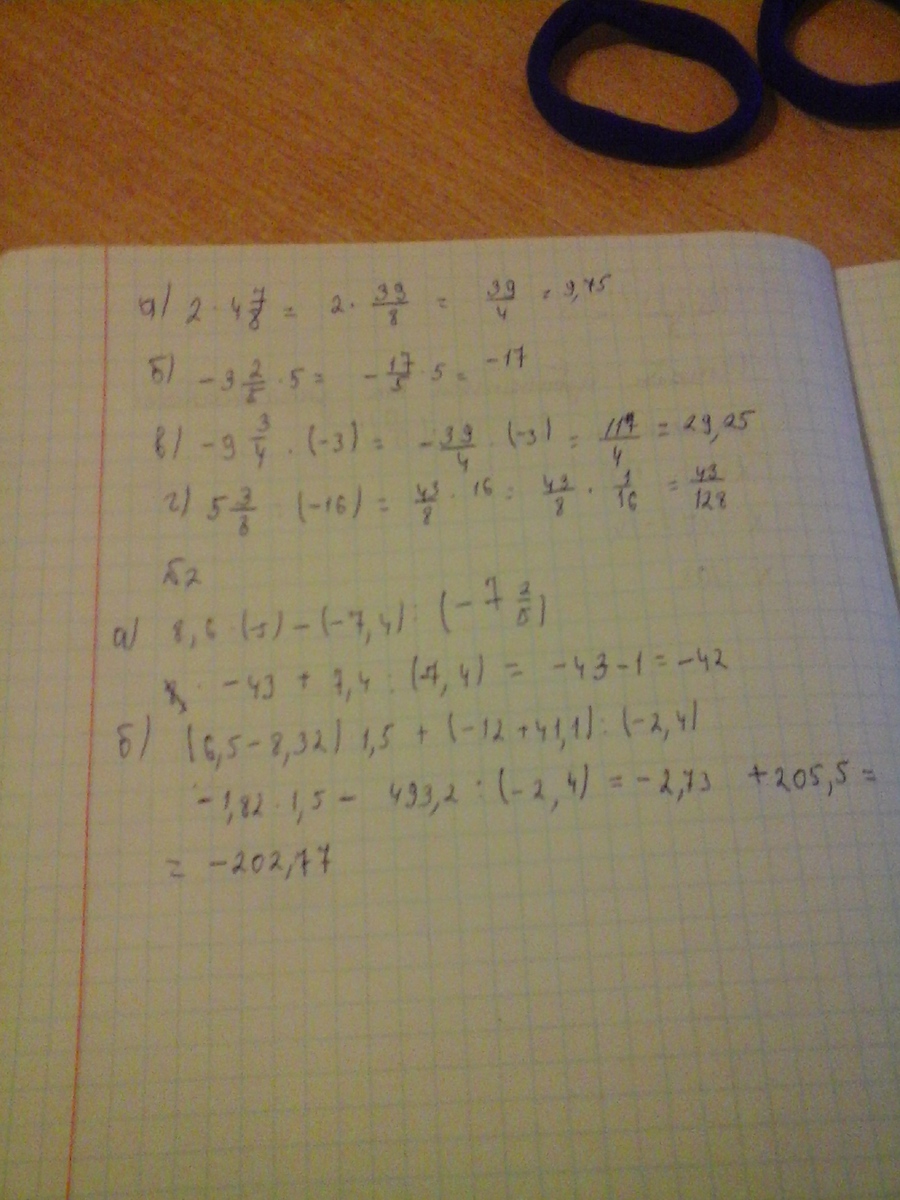 а) 2 · 4 7/8 = 2 · 39/8 = 39/4 = 9,75
б) -3 2/5 · 5 = -17/5 · 5 = -17
в) -9 3/4 · (-3) = -39/4 · (-3) = 117/4 = 29,25
г) 5 3/8 (-16) = 43/8 · 16 = 43/8 · 1/16 = 43/128
№2
а) 8,6 · (-5) - (-7,4) : (-7 2/5)
-43 + 7,4 : (-7,4) = -43-1 = -42
б) (6,5-8,32) 1,5 + (-12+41,1) : (-2,4)
-1,82 · 1,5 - 493,2 : (-2,4) = -2,73 +205,5 =
= -202,77